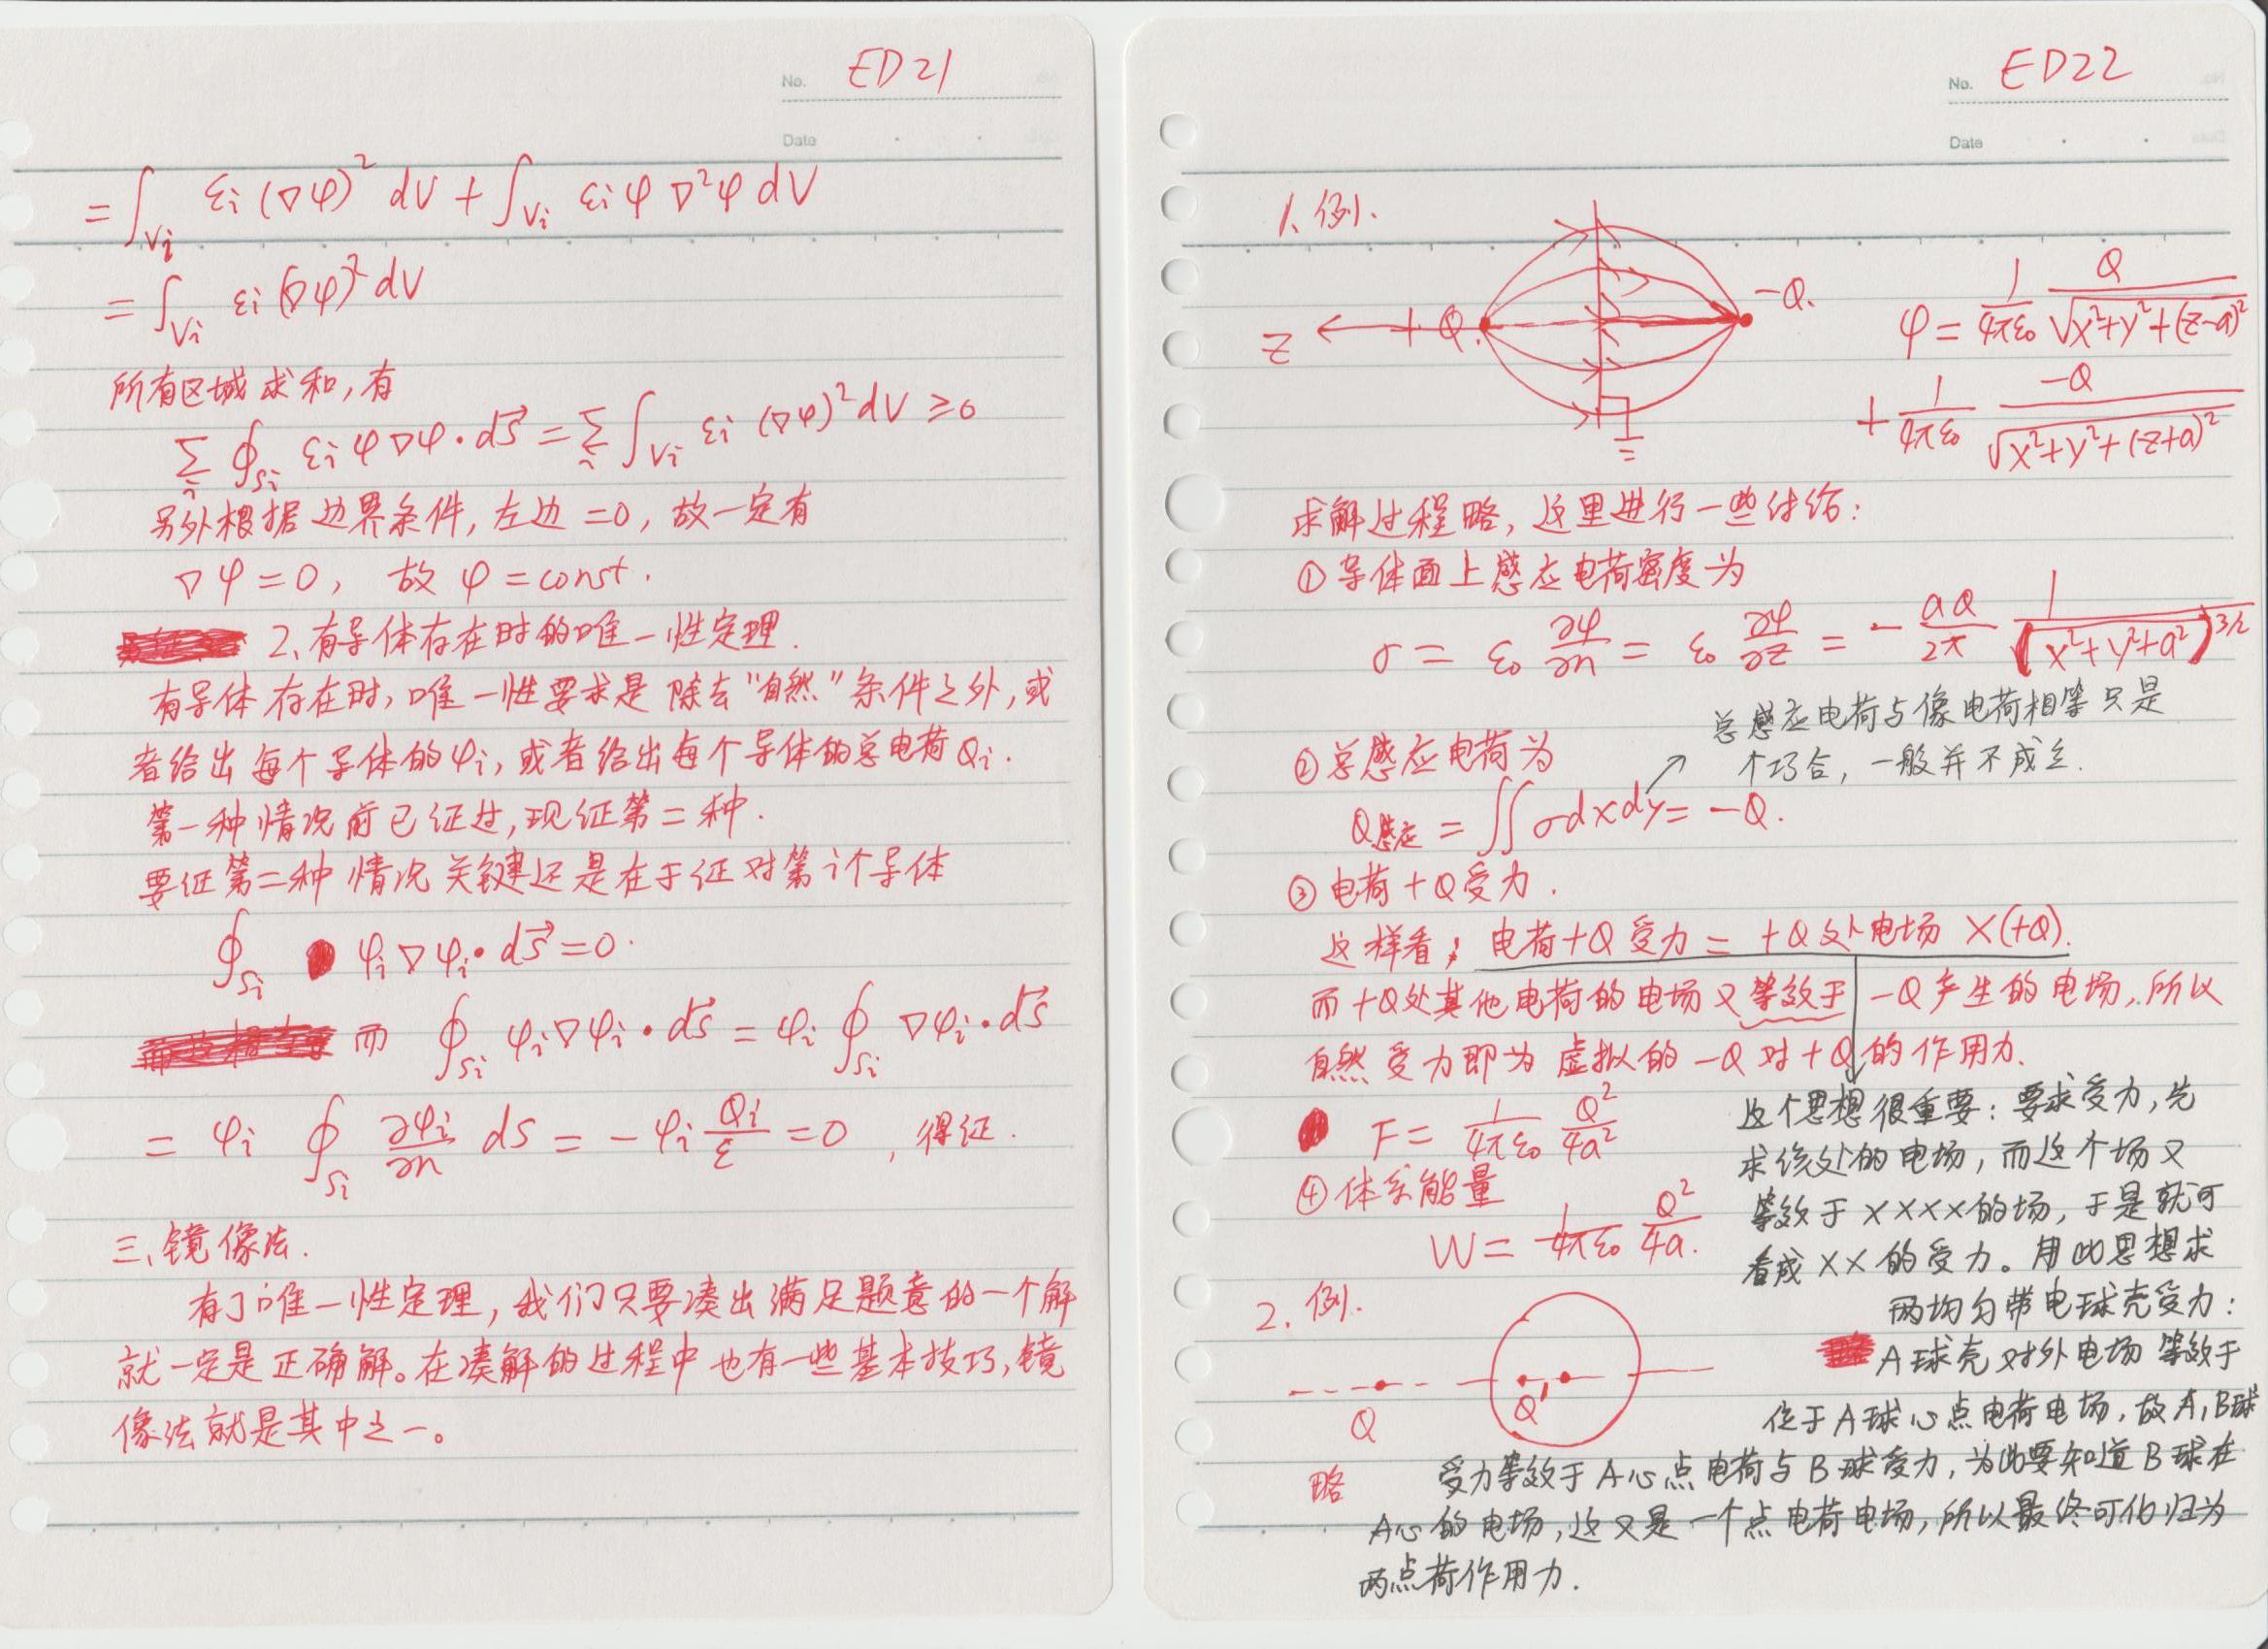 No. ED21
Date
= ∫_{Vi} εi (∇φ)² dV + ∫_{Vi} εi φ ∇²φ dV
= ∫_{Vi} εi (∇φ)² dV
所有区域求和，有
Σ_i ∮_{Si} εi φ∇φ·dS⃗ = Σ_i ∫_{Vi} εi (∇φ)² dV ≥ 0
另外根据边界条件，左边=0，故一定有
∇φ=0， 故 φ=const.
2、有导体存在时的唯一性定理.
有导体存在时，唯一性要求是除去"自然"条件之外，或
者给出每个导体的φi，或者给出每个导体的总电荷Qi.
第一种情况前已证过，现证第二种.
要证第二种情况关键还是在于证对第i个导体
∮_{Si} φi∇φi·dS⃗=0.
而 ∮_{Si} φi∇φi·dS⃗ = φi ∮_{Si} ∇φi·dS⃗
= φi ∮_{Si} ∂φi/∂n dS = -φi Qi/ε = 0 ，得证.
三、镜像法.
有了唯一性定理，我们只要凑出满足题意的一个解
就一定是正确解。在凑解的过程中也有一些基本技巧，镜
像法就是其中之一。
No. ED22
Date
1、例.
Z +Q. -Q.
φ = 1/(4πε₀) Q/√(x²+y²+(z-a)²)
+ 1/(4πε₀) -Q/√(x²+y²+(z+a)²)
求解过程略，这里进行一些讨论：
① 导体面上感应电荷密度为
σ = ε₀ ∂φ/∂n = ε₀ ∂φ/∂z = - aQ/2π 1/(x²+y²+a²)^{3/2}
总感应电荷与像电荷相等只是
个巧合，一般并不成立.
② 总感应电荷为
Q感应 = ∬σdxdy = -Q.
③ 电荷+Q受力.
这样看：电荷+Q受力 = +Q处电场 ×(+Q).
而+Q处其他电荷的电场又等效于-Q产生的电场，所以
自然受力即为虚拟的-Q对+Q的作用力.
F = 1/(4πε₀) Q²/4a²
④ 体系能量
W = 1/(4πε₀) Q²/4a.
这个思想很重要：要求受力，先
求该处的电场，而这个场又
等效于××××的场，于是就可
看成××的受力。用此思想求
两均匀带电球壳受力：
A球壳对外电场等效于
位于A球心点电荷电场，故A，B球
受力等效于A心点电荷与B球受力，为此要知道B球在
A心的电场，这又是一个点电荷电场，所以最终可化归为
两点荷作用力.
2、例.
Q Q'
略